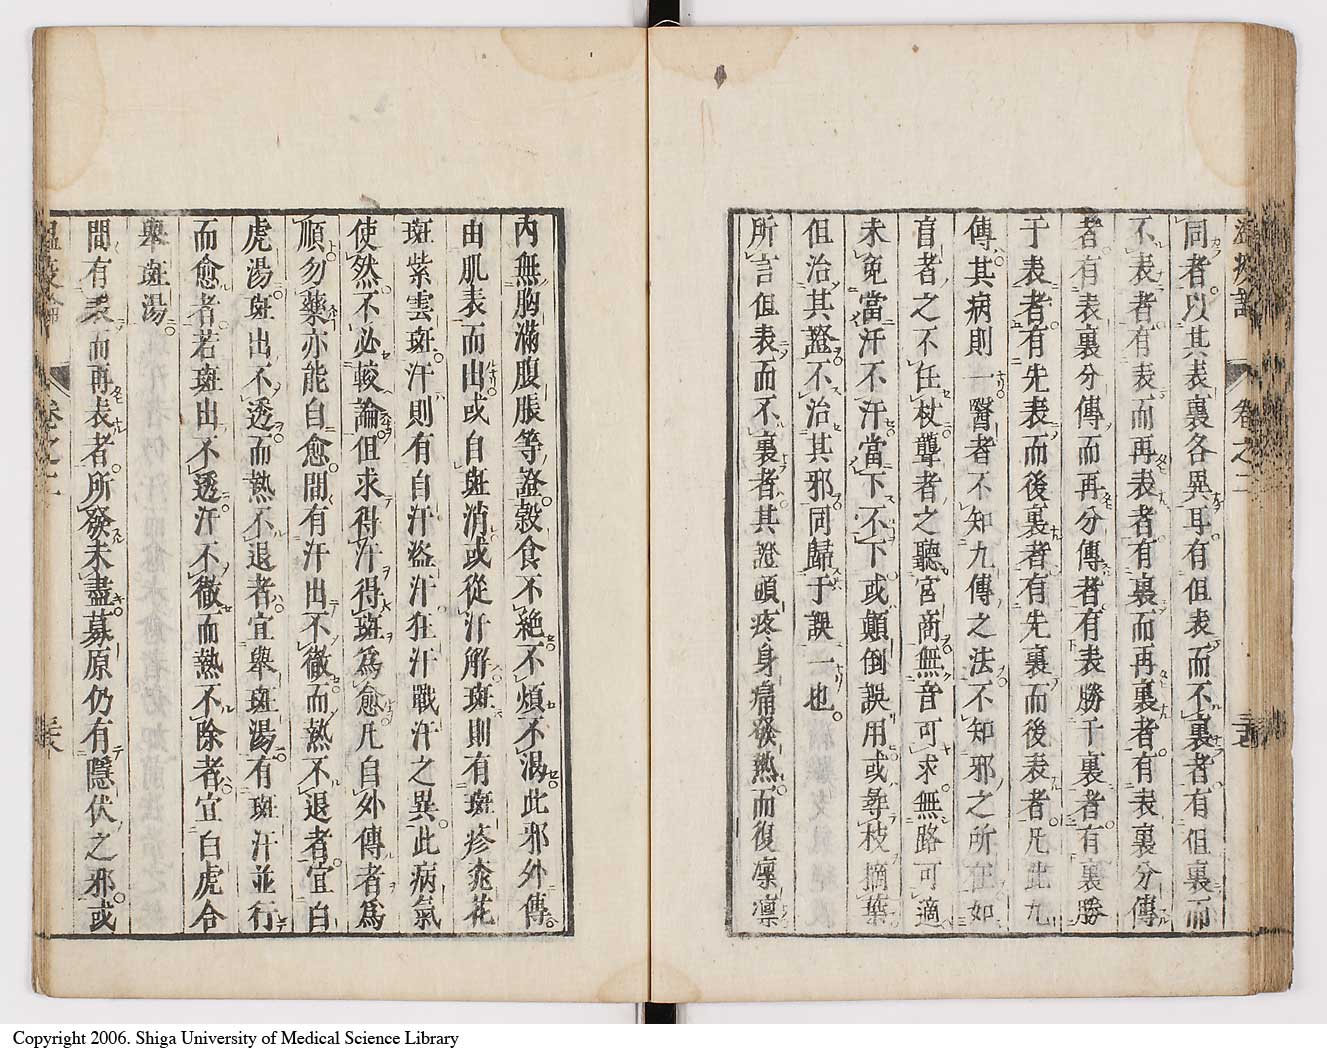 卷之二
同者以其表裏各異耳有但表而不裏者有但裏而
不表者有表而再表者有裏而再裏者有表裏分傳
者有表裏分傳而再分傳者有表勝于裏者有裏勝
于表者有先表而後裏者有先裏而後表者凡此九
傳其病則一醫者不知九傳之法不知邪之所在如
盲者之不任杖聾者之聽宮商無音可求無路可適
未免當汗不汗當下不下或顛倒誤用或尋枝摘葉
但治其證不治其邪同歸于誤一也
所言但表而不裏者其證頭疼身痛發熱而復凜凜
內無胸滿腹脹等證穀食不絕不煩不渴此邪外傳
由肌表而出或自斑消或從汗解斑則有斑疹桃花
斑紫雲斑汗則有自汗盜汗狂汗戰汗之異此病氣
使然不必較論但求得汗得斑為愈凡自外傳者為
順勿藥亦能自愈間有汗出不徹而熱不退者宜白
虎湯斑出不透而熱不退者宜舉斑湯有斑汗並行
而愈者若斑出不透汗不徹而熱不除者宜白虎合
舉斑湯
間有表而再表者所發未盡募原仍有隱伏之邪或
卷之二
Copyright 2006. Shiga University of Medical Science Library